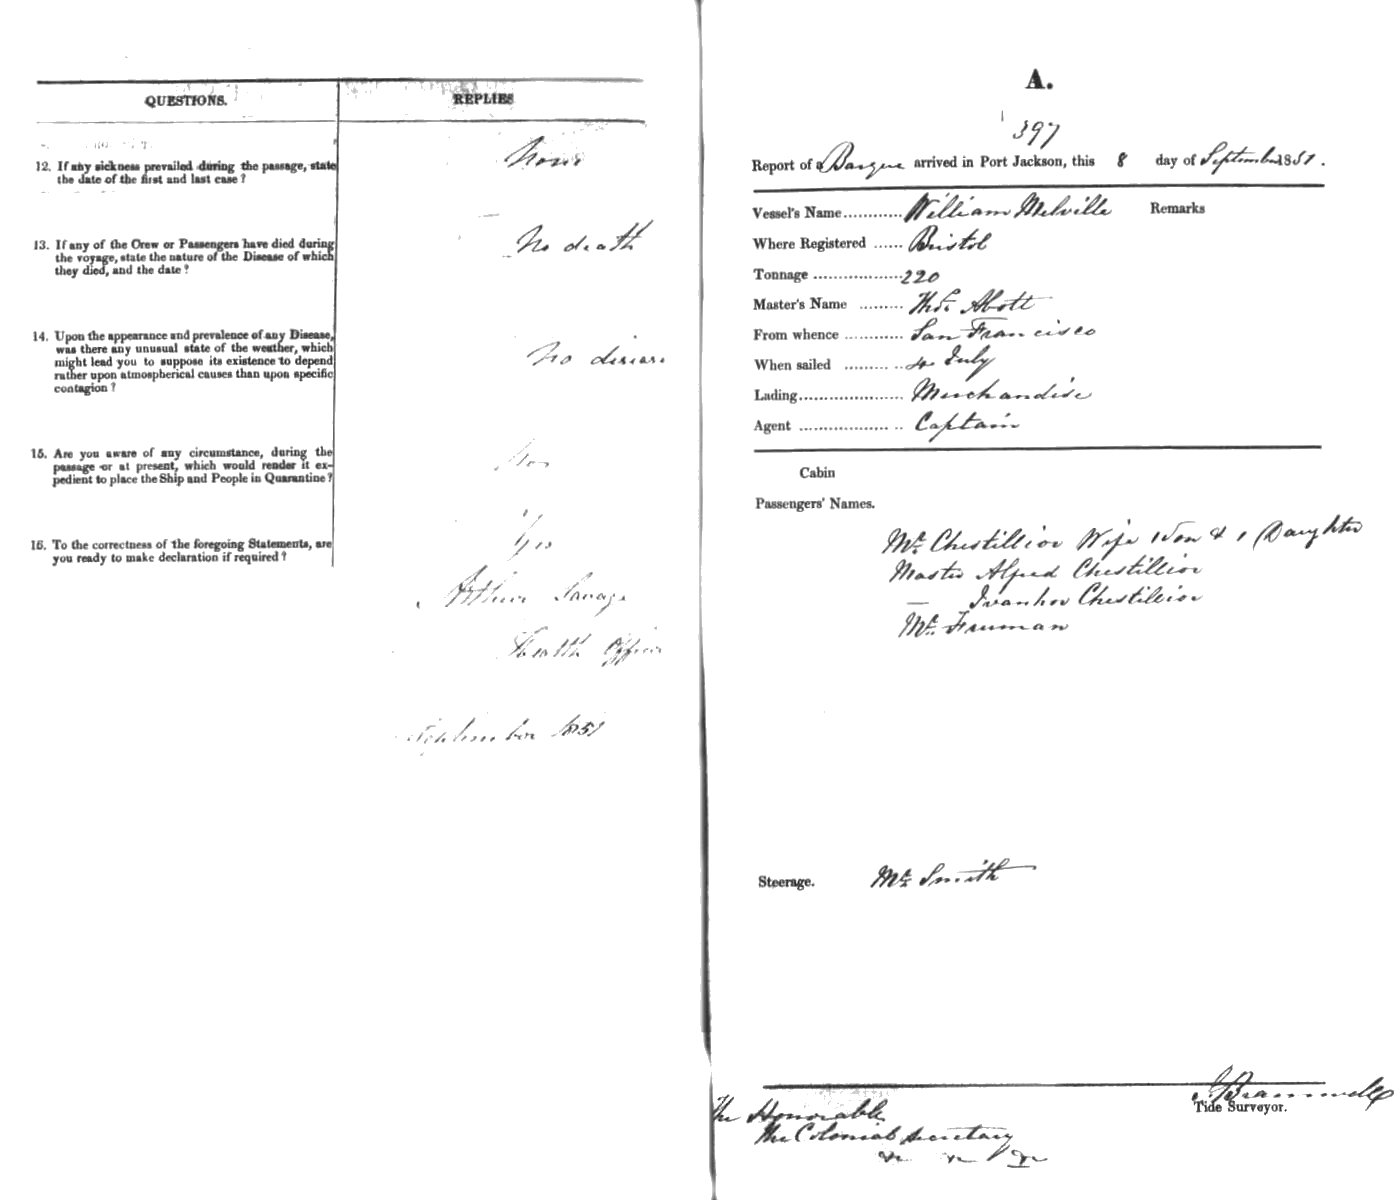 QUESTIONS. REPLIES
12. If any sickness prevailed during the passage, state
the date of the first and last case?
None
13. If any of the Crew or Passengers have died during
the voyage, state the nature of the Disease of which
they died, and the date?
No death
14. Upon the appearance and prevalence of any Disease,
was there any unusual state of the weather, which
might lead you to suppose its existence to depend
rather upon atmospherical causes than upon specific
contagion?
No disease
15. Are you aware of any circumstance, during the
passage or at present, which would render it ex-
pedient to place the Ship and People in Quarantine?
No
16. To the correctness of the foregoing Statements, are
you ready to make declaration if required?
Yes
Arthur Savage
Health Officer
September 1851
A.
397
Report of a Barque arrived in Port Jackson, this 8 day of September 1851.
Vessel's Name............ William Melville Remarks
Where Registered ...... Bristol
Tonnage .................. 220
Master's Name ......... Thos Abott
From whence ............ San Francisco
When sailed ......... .. 4 July
Lading..................... Merchandise
Agent .................. .. Captain
Cabin
Passengers' Names.
Mr Chestillior Wife 1 Son & 1 Daughter
Master Alfred Chestillior
— Ivanhoe Chestillior
Mr Fruman
Steerage. Mr Smith
J Bramwell
Tide Surveyor.
The Honorable
The Colonial Secretary